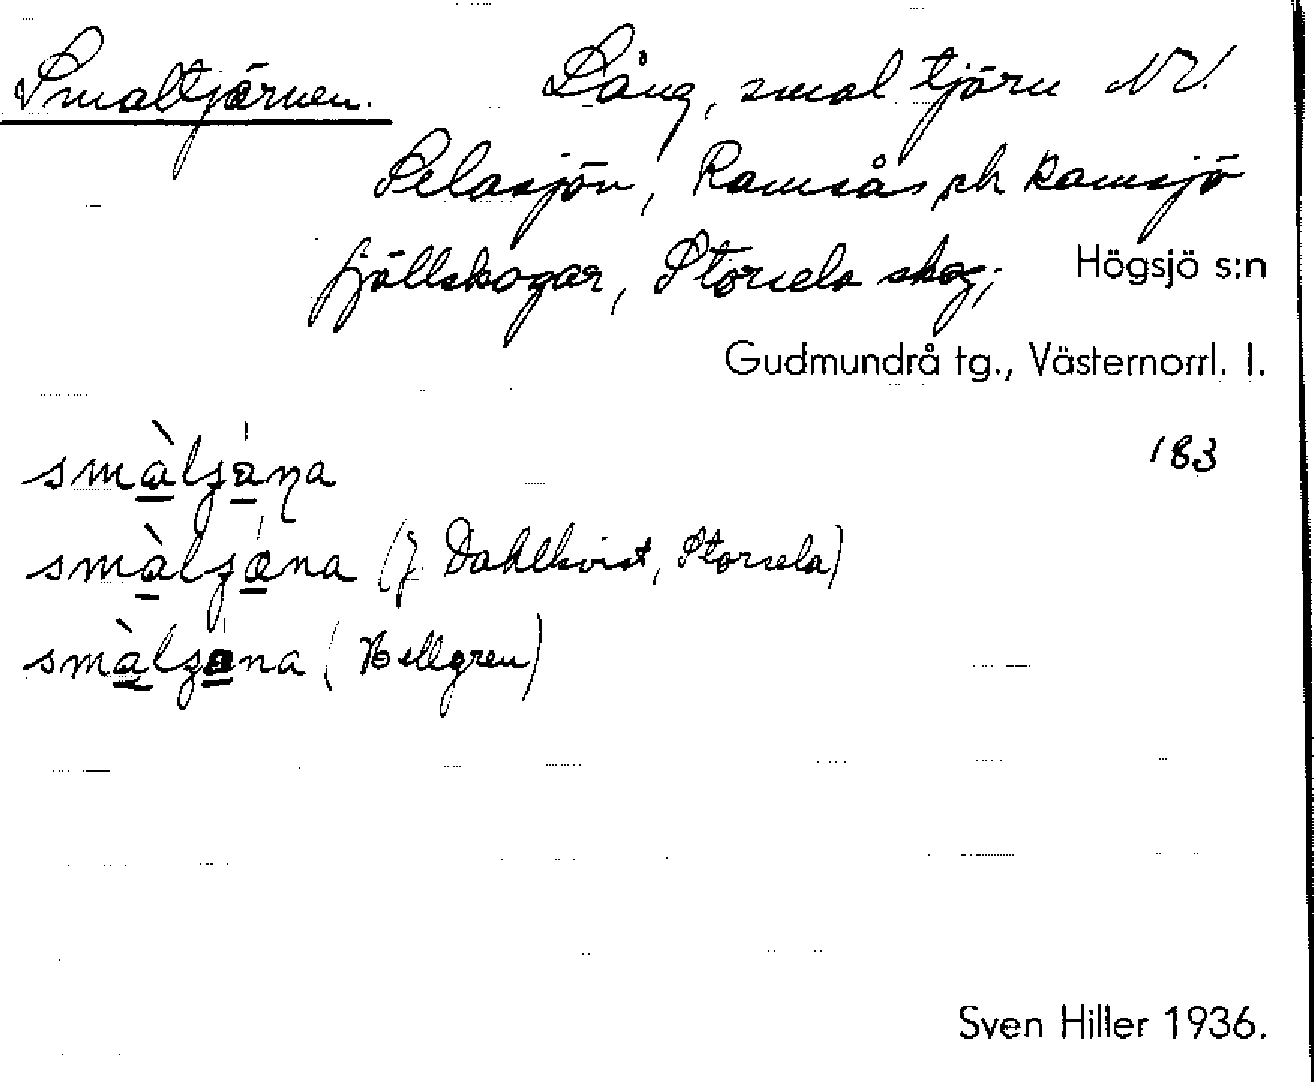 Smaltjärnen. Lång, smal tjärn NV.
Selasjön, Ramsås och Ramsjö
fjällskogar, Storsela skog; Högsjö s:n
Gudmundrå tg., Västernorrl. l.
183
smàlʒána
smàlʒǽna (J. Dahlkvist, Storsela)
(Hellgren)
Sven Hiller 1936.